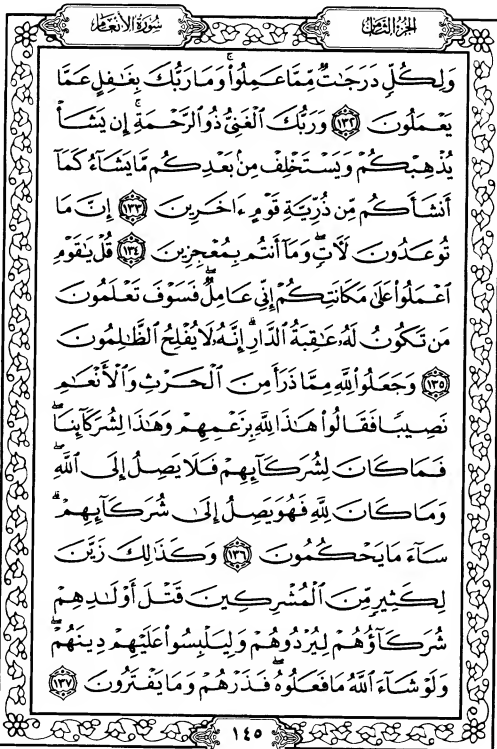 سُورَةُ الأَنْعَام الجُزْءُ الثَّامِن
وَلِكُلٍّ دَرَجَٰتٌ مِّمَّا عَمِلُوا۟ ۚ وَمَا رَبُّكَ بِغَٰفِلٍ عَمَّا
يَعْمَلُونَ ١٣٢ وَرَبُّكَ ٱلْغَنِىُّ ذُو ٱلرَّحْمَةِ ۚ إِن يَشَأْ
يُذْهِبْكُمْ وَيَسْتَخْلِفْ مِنۢ بَعْدِكُم مَّا يَشَآءُ كَمَآ
أَنشَأَكُم مِّن ذُرِّيَّةِ قَوْمٍ ءَاخَرِينَ ١٣٣ إِنَّ مَا
تُوعَدُونَ لَءَاتٍ ۖ وَمَآ أَنتُم بِمُعْجِزِينَ ١٣٤ قُلْ يَٰقَوْمِ
ٱعْمَلُوا۟ عَلَىٰ مَكَانَتِكُمْ إِنِّى عَامِلٌ ۖ فَسَوْفَ تَعْلَمُونَ
مَن تَكُونُ لَهُۥ عَٰقِبَةُ ٱلدَّارِ ۗ إِنَّهُۥ لَا يُفْلِحُ ٱلظَّٰلِمُونَ
١٣٥ وَجَعَلُوا۟ لِلَّهِ مِمَّا ذَرَأَ مِنَ ٱلْحَرْثِ وَٱلْأَنْعَٰمِ
نَصِيبًا فَقَالُوا۟ هَٰذَا لِلَّهِ بِزَعْمِهِمْ وَهَٰذَا لِشُرَكَآئِنَا ۖ
فَمَا كَانَ لِشُرَكَآئِهِمْ فَلَا يَصِلُ إِلَى ٱللَّهِ ۖ
وَمَا كَانَ لِلَّهِ فَهُوَ يَصِلُ إِلَىٰ شُرَكَآئِهِمْ ۗ
سَآءَ مَا يَحْكُمُونَ ١٣٦ وَكَذَٰلِكَ زَيَّنَ
لِكَثِيرٍ مِّنَ ٱلْمُشْرِكِينَ قَتْلَ أَوْلَٰدِهِمْ
شُرَكَآؤُهُمْ لِيُرْدُوهُمْ وَلِيَلْبِسُوا۟ عَلَيْهِمْ دِينَهُمْ ۖ
وَلَوْ شَآءَ ٱللَّهُ مَا فَعَلُوهُ ۖ فَذَرْهُمْ وَمَا يَفْتَرُونَ ١٣٧
١٤٥